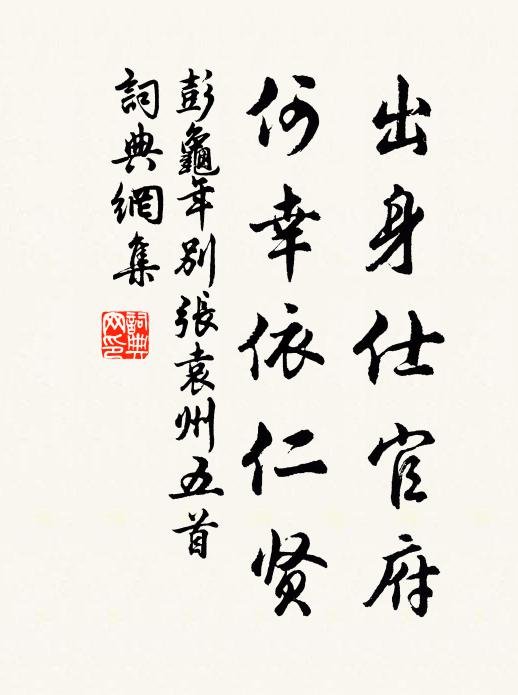 出身仕官府
何幸依仁贤
彭龜年别張袁州五首
詞典網集
詞典網印